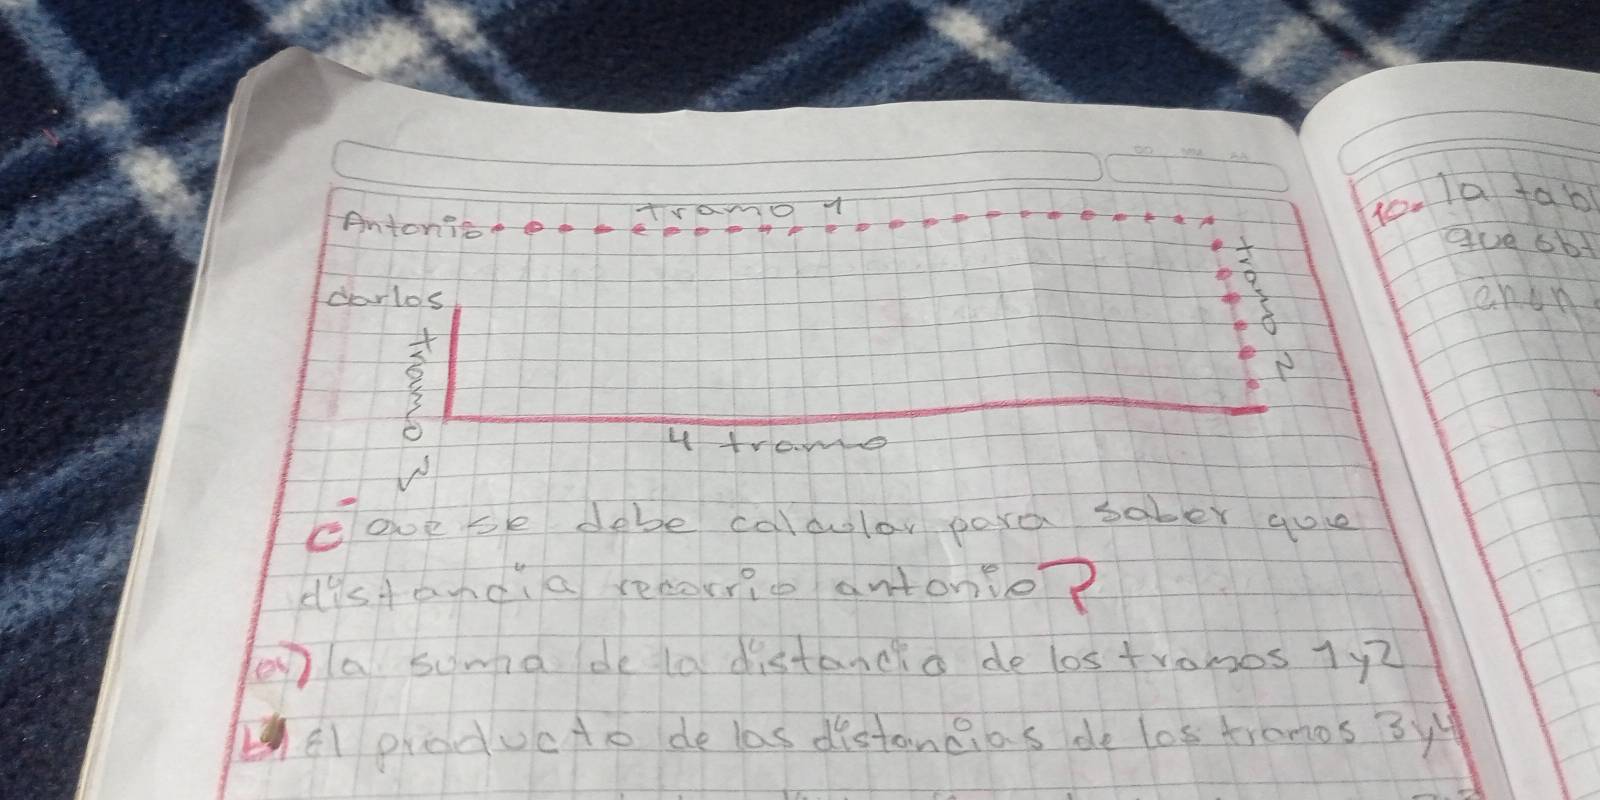 DD MM AA
tramo 1
Antonio
carlos
tramo 2
tramo 3
4 tramo
¿ que se debe calcular para saber que
distancia recorrio antonio?
a) la suma de la distancia de los tramos 1 y 2
b) El producto de las distancias de los tramos 3 y 4
10. la tabl
que obt